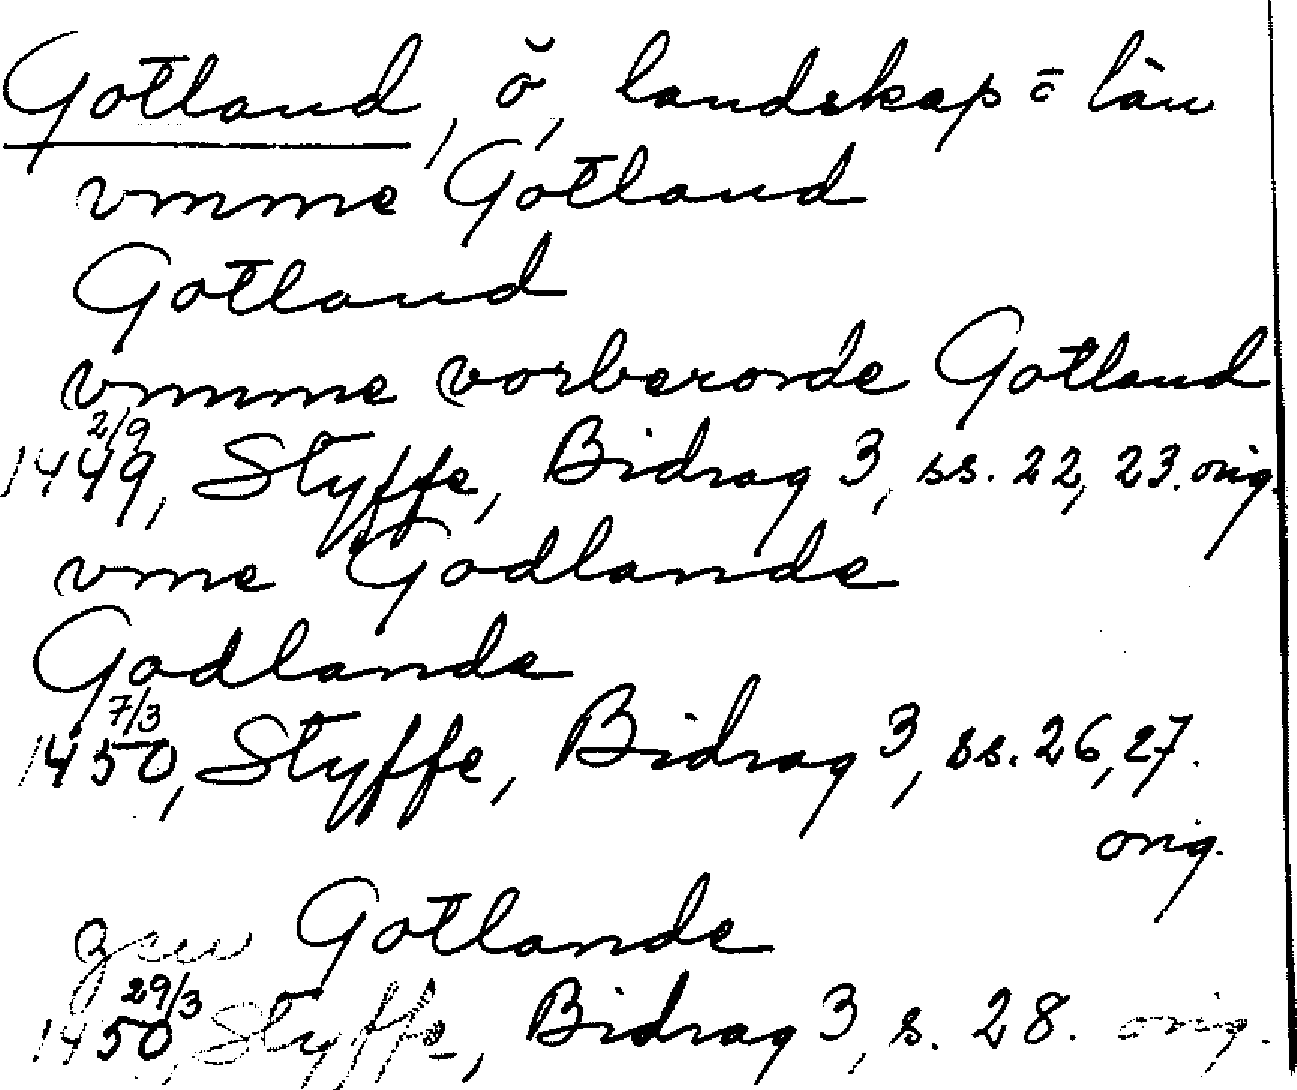 Gotland, ö, landskap o. län
vmme Gotland
Gotland
vmme vorberorde Gotland
1449 2/9, Styffe, Bidrag 3, ss. 22, 23. orig.
vme Godlande
Godlande
1450 7/3, Styffe, Bidrag 3, ss. 26, 27.
orig.
Gotlande
1450 29/3, Styffe, Bidrag 3, s. 28. orig.